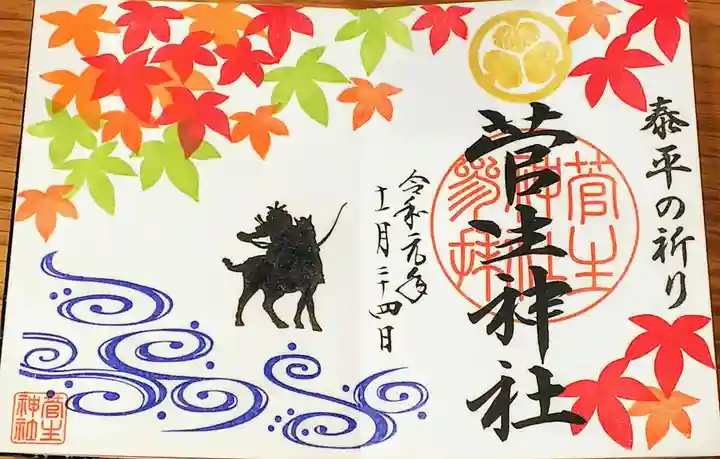 泰平の祈り
菅生神社
菅生神社参拝
令和元年
十一月二十四日
菅生神社